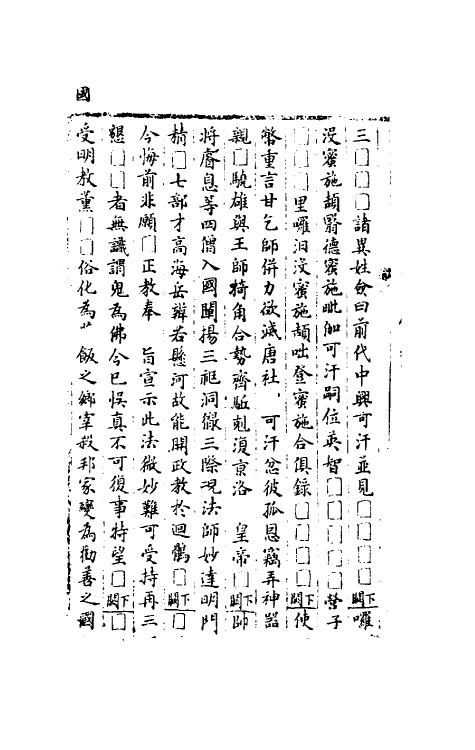 國
三□□□諸異姓僉曰前代中興可汗並見□□□□下闕囉
没蜜施頡翳德蜜施毗伽可汗嗣位英智□□□□營子
□□□里囉汨没蜜施頡咄登蜜施合俱錄□□□□下闕使
幣重言甘乞師併力欲滅唐社 可汗忿彼孤恩竊弄神器
親□驍雄與王師犄角合勢齊驅剋復京洛 皇帝□下闕師
將睿息等四僧入國闡揚二祀洞徹三際況法師妙達明門
精□七部才高海岳辯若懸河故能開政教於迴鶻□下闕□
今悔前非願□正教奉 旨宣示此法微妙難可受持再三
懇□□者無識謂鬼為佛今已悞真不可復事特望□下闕□
受明教薰□□俗化為 飯之鄉宰殺邦家變為勸善之國